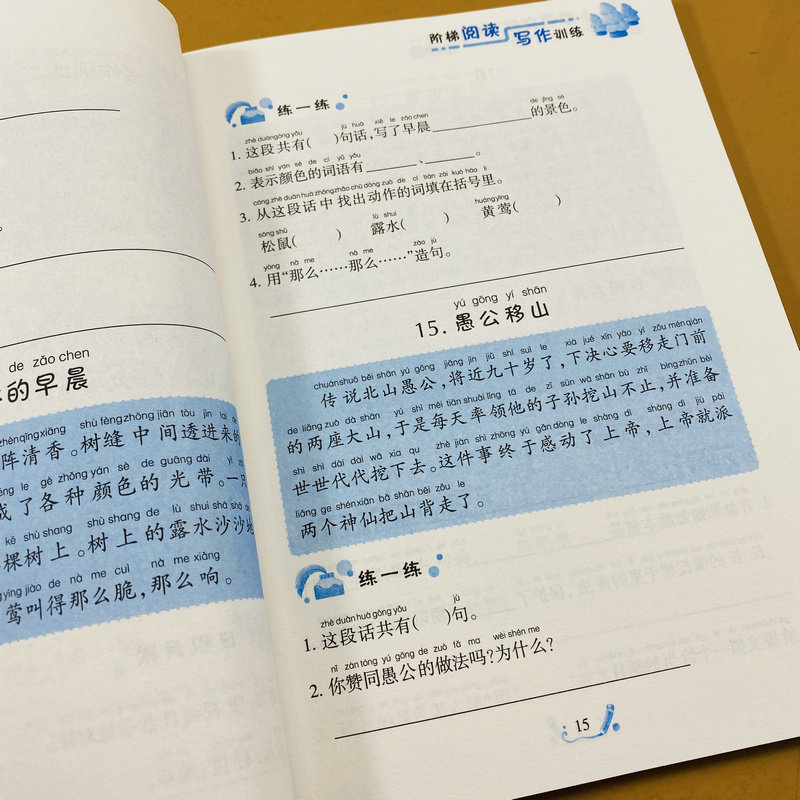 de zǎo chen
的早晨
zhèn qīng xiāng shù fèng zhōng jiān tòu jìn lai
阵清香。树缝中间透进来的
le gè zhǒng yán sè de guāng dài
成了各种颜色的光带。一只
kē shù shang shù shang de lù shui shā shā
棵树上。树上的露水沙沙地
yīng jiào de nà me cuì nà me xiǎng
莺叫得那么脆，那么响。
阶梯阅读 写作训练
练一练
zhè duàn gòng yǒu jù huà xiě le zǎo chen de jǐng sè
1. 这段共有( )句话，写了早晨____的景色。
biǎo shì yán sè de cí yǔ yǒu
2. 表示颜色的词语有____、____。
cóng zhè duàn huà zhōng zhǎo chū dòng zuò de cí tián zài kuò hào lǐ
3. 从这段话中找出动作的词填在括号里。
sōng shǔ lù shui huáng yīng
松鼠( ) 露水( ) 黄莺( )
yòng nà me nà me zào jù
4. 用“那么……那么……”造句。
yú gōng yí shān
15. 愚公移山
chuán shuō běi shān yú gōng jiāng jìn jiǔ shí suì le xià jué xīn yào yí zǒu mén qián
传说北山愚公，将近九十岁了，下决心要移走门前
de liǎng zuò dà shān yú shì měi tiān shuài lǐng tā de zǐ sūn wā shān bù zhǐ bìng zhǔn bèi
的两座大山，于是每天率领他的子孙挖山不止，并准备
shì shì dài dài wā xia qu zhè jiàn shì zhōng yú gǎn dòng le shàng dì shàng dì jiù pài
世世代代挖下去。这件事终于感动了上帝，上帝就派
liǎng ge shén xiān bǎ shān bēi zǒu le
两个神仙把山背走了。
练一练
zhè duàn huà gòng yǒu jù
1. 这段话共有( )句。
nǐ zàn tóng yú gōng de zuò fǎ ma wèi shén me
2. 你赞同愚公的做法吗?为什么?
15